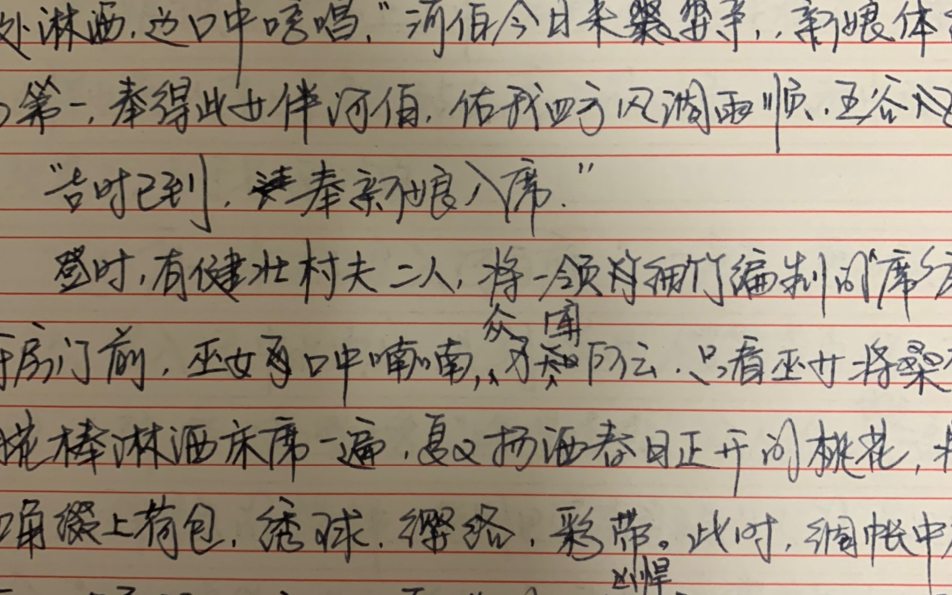 淋洒,边口中唸唱,"河伯今日来娶亲,新娘体
第一,奉得此女伴河伯,佑我四方风调雨顺,五谷
"吉时已到,请奉新娘入席."
登时,有健壮村夫二人,将一领 细竹编制的"席
房门前,巫女再口中喃喃,众不知所云.只看巫女将桑
棒淋洒床席一遍,复又扬洒春日正开的桃花,
角缀上荷包,绣球,缨络,彩带。此时,绸帐中
凶悍